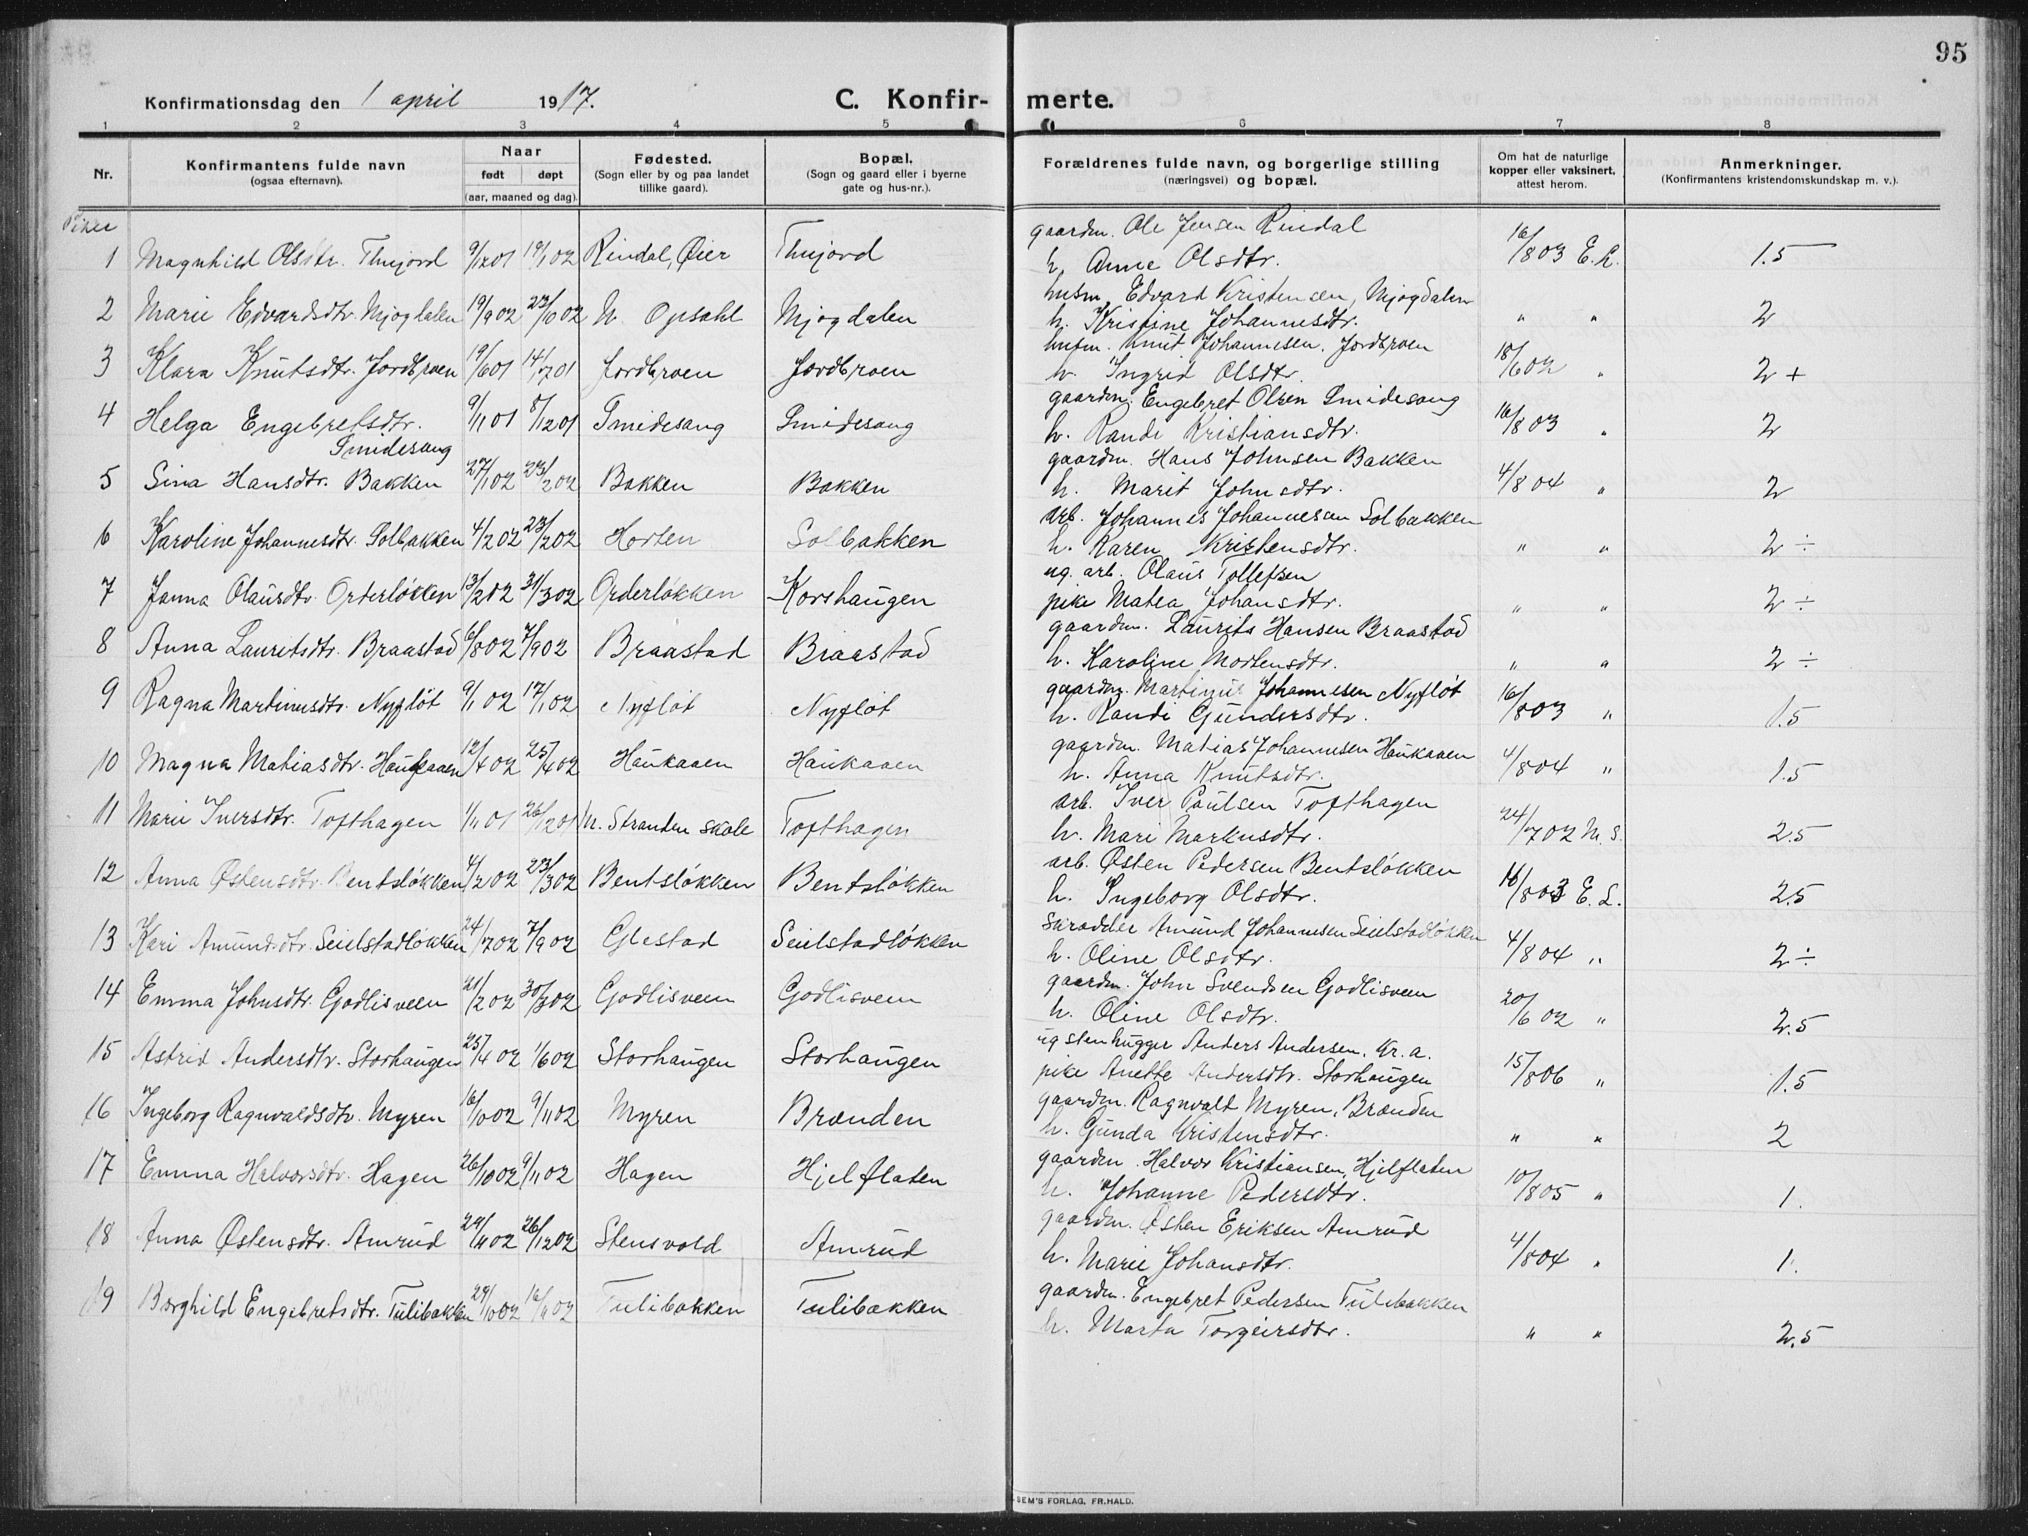 95
Konfirmationsdag den 1 april 1917. C. Konfir- merte.
1 2 3 4 5 6 7 8
Nr.
Konfirmantens fulde navn
(ogsaa efternavn).
Naar
født døpt
(aar, maaned og dag).
Fødested.
(Sogn eller by og paa landet
tillike gaard).
Bopæl.
(Sogn og gaard eller i byerne
gate og hus-nr.).
Forældrenes fulde navn, og borgerlige stilling
(næringsvei) og bopæl.
Om hat de naturlige
kopper eller vaksinert,
attest herom.
Anmerkninger.
(Konfirmantens kristendomskundskap m. v.).
Piker
gaardm. Ole Jensen Rindal
1 Magnhild Olsdtr. Thujord 9/12 01 19/1 02 Rindal, Øier Thujord h. Anne Olsdtr. 16/8 03 E. L. 1.5
husm. Edvard Kristensen, Mjogdalen
2 Marie Edvardsdtr. Mjogdalen 19/9 02 23/10 02 N. Opsahl Mjogdalen h. Kristine Johannesdtr. " " 2
husm. Knut Johannesen, Jordbroen
3 Klara Knutsdtr. Jordbroen 19/6 01 14/7 01 Jordbroen Jordbroen h. Ingrid Olsdtr. 18/6 02 " 2 +
gaardm. Engebret Olsen Smidesang
4 Helga Engebretsdtr. 9/11 01 8/12 01 Smidesang Smidesang h. Randi Kristiansdtr. 16/8 03 " 2
Smidesang
gaardm. Hans Johnsen Bakken
5 Sina Hansdtr. Bakken 27/1 02 23/2 02 Bakken Bakken h. Marit Johnsdtr. 4/8 04 " 2
arb. Johannes Johannesen Solbakken
6 Karoline Johannesdtr. Solbakken 4/2 02 23/2 02 Horten Solbakken h. Karen Kristensdtr. " " 2 ÷
ug. arb. Olaus Tollefsen
7 Janna Olausdtr. Orderløkken 13/2 02 31/3 02 Orderløkken Korshaugen pike Matea Johansdtr. " " 2 ÷
gaardm. Laurits Hansen Braastad
8 Anna Lauritsdtr. Braastad 6/8 02 7/9 02 Braastad Braastad h. Karoline Mortensdtr. " " 2 ÷
gaardm. Martinus Johannesen Nyfløt
9 Ragna Martinusdtr. Nyfløt 9/1 02 17/1 02 Nyfløt Nyfløt h. Randi Gundersdtr. 16/8 03 " 1.5
gaardm. Matias Johannesen Haukaaen
10 Magna Matiasdtr. Haukaaen 12/4 02 25/4 02 Haukaaen Haukaaen h. Anna Knutsdtr. 4/8 04 " 1.5
arb. Iver Paulsen Tofthagen
11 Marie Iversdtr. Tofthagen 1/11 01 26/12 01 N. Stranden skole Tofthagen h. Mari Markusdtr. 24/7 02 M. S. 2.5
arb. Østen Pedersen Bentsløkken
12 Anna Østensdtr. Bentsløkken 4/2 02 23/3 02 Bentsløkken Bentsløkken h. Ingeborg Olsdtr. 16/8 03 E. L. 2.5
skrædder Amund Johannesen Seielstadløkken
13 Kari Amundsdtr. Seielstadløkken 24/7 02 7/9 02 Glestad Seielstadløkken h. Oline Olsdtr. 4/8 04 " 2 ÷
gaardm. John Svendsen Godlisveen
14 Emma Johnsdtr. Godlisveen 21/2 02 30/3 02 Godlisveen Godlisveen h. Oline Olsdtr. 20/6 02 " 2.5
ug stenhugger Anders Andersen. Kr. a.
15 Astrid Andersdtr. Storhaugen 25/4 02 1/6 02 Storhaugen Storhaugen pike Anette Andersdtr. Storhaugen 15/8 06 " 1.5
gaardm. Ragnvalt Myren, Brænden
16 Ingeborg Ragnvaldsdtr. Myren 16/10 02 9/11 02 Myren Brænden h. Gunda Kristensdtr. " " 2
gaardm. Halvor Kristiansen, Hjelflaten
17 Emma Halvorsdtr. Hagen 26/10 02 9/11 02 Hagen Hjelflaten h. Johanne Pedersdtr. 10/8 05 " 1.
gaardm. Østen Eriksen Amrud
18 Anna Østensdtr. Amrud 24/11 02 26/12 02 Stensvold Amrud h. Marie Johansdtr. 4/8 04 " 1.
gaardm. Engebret Pedersen Tulibakken
19 Borghild Engebretsdtr. Tulibakken 29/10 02 16/11 02 Tulibakken Tulibakken h. Marta Torgeirsdtr. " " 2.5
SEM'S FORLAG, FR.HALD.